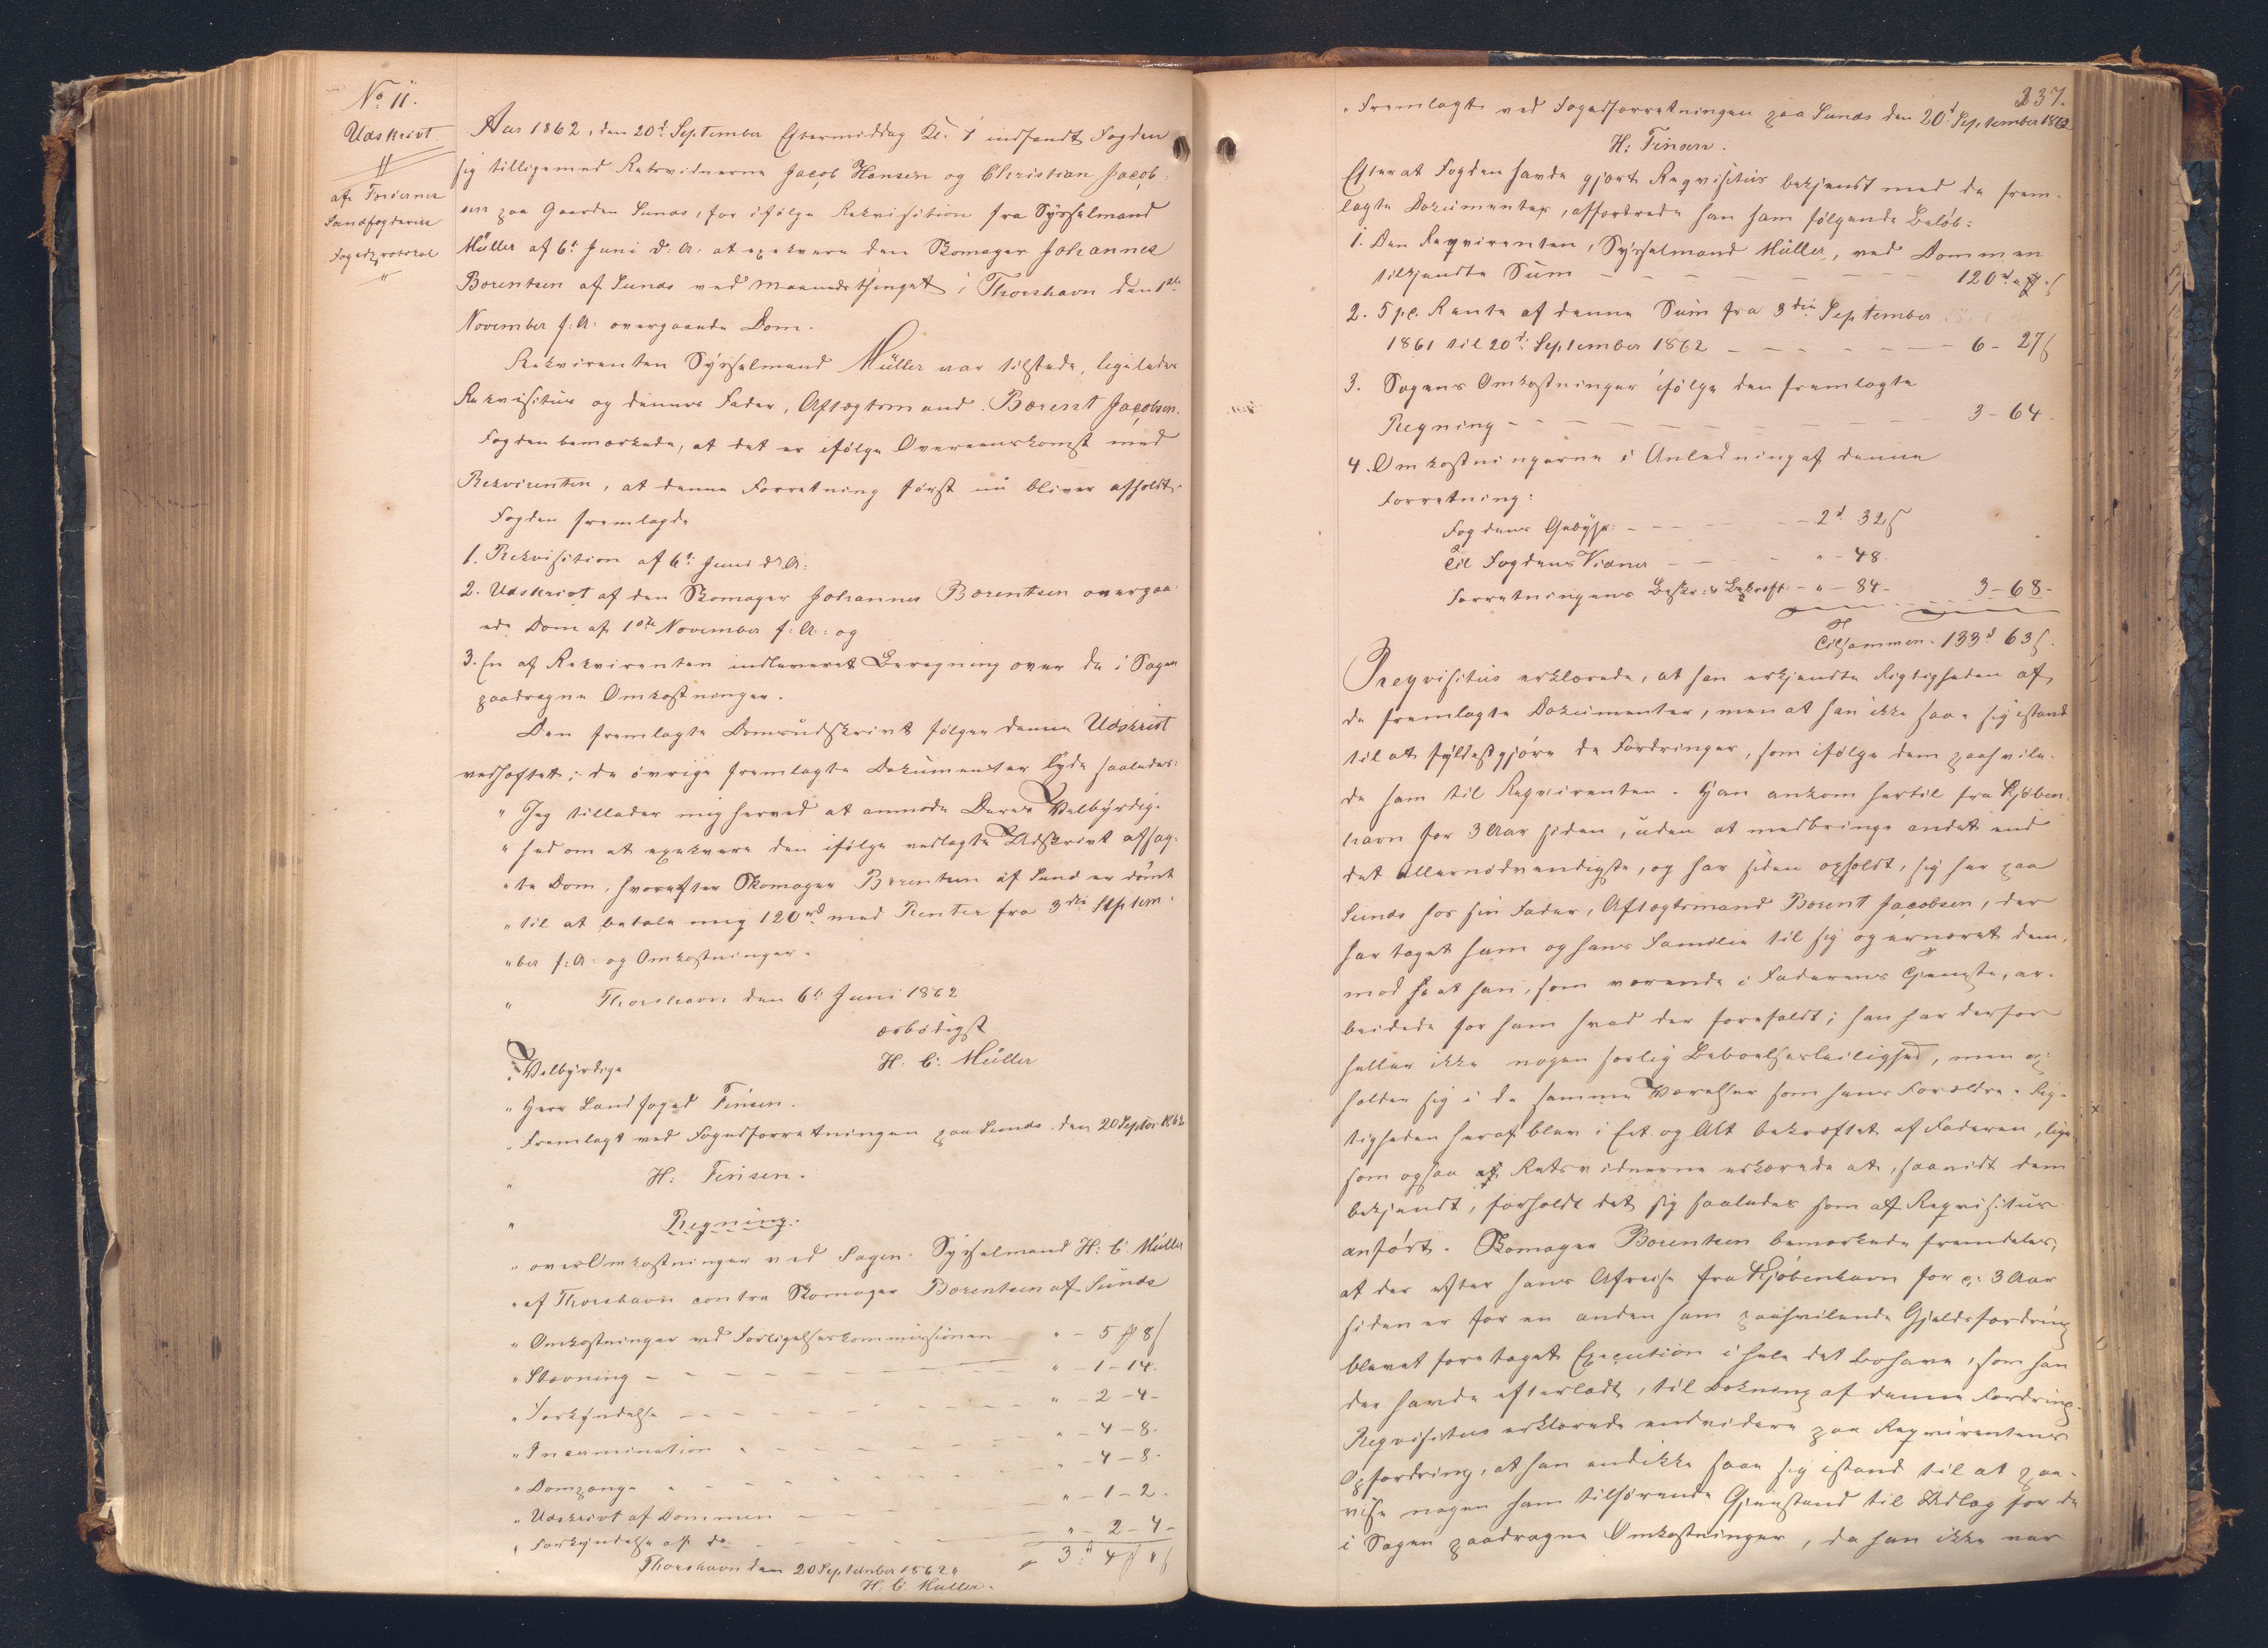 No 11.
Udskrivt
//
af Færøernes
Landfogderies
Fogedprotokol
"
Aar 1862, den 20d September Eftermiddag Kl. 1 indfandt Fogden
sig tilligemed Retsvidnerne Jacob Hansen og Christian Jacob-
sen paa Gaarden Sunds, for ifølge Rekvisition fra Sysselmand
Müller af 6t Juni d: A: at exekvere den Skomager Johannes
Borentsen af Sunds ved Maanedsthinget i Thorshavn den 1ste
November f: A: overgaaede Dom.
Rekvirenten Sysselmand Müller var tilstede, ligeledes
Rekvisitus og dennes Fader, Aftægtsmand Borent Jacobsen.
Fogden bemærkede, at det er ifølge Overeenskomst med
Rekvirenten, at denne Forretning først nu bliver afholdt.
Fogden fremlagde
1. Rekvisition af 6t Juni d: A:
2. Udskrivt af den Skomager Johannes Borentsen overgaa-
ede Dom af 1ste November f: A: og
3. En af Rekvirenten indleveret Beregning over de i Sagen
paadragne Omkostninger.
Den fremlagte Domsudskrivt følger denne Udskrivt
vedhæftet; de øvrige fremlagte Dokumenter lyde saaledes:
" Jeg tillader mig herved at anmode Deres Velbyrdig-
" hed om at exekvere den ifølge vedlagte Udskrivt afsag-
" te Dom, hvorefter Skomager Borentsen af Sund er dømt
" til at betale mig 120rd med Renter fra 3die Septem-
" ber f: A: og Omkostninger.
" Thorshavn den 6t Juni 1862
ærbødigst
H. C. Müller
" Velbyrdige
" Herr Landfoged Finsen.
" Fremlagt ved Fogedforretningen paa Sunds den 20 Septbr 1862
" H: Finsen.
" Regning.
" over Omkostninger ved Sagen: Sysselmand H: C. Müller
" af Thorshavn contra Skomager Borentsen af Sunds
" Omkostninger ved Forligelseskommissionen " - 5 ₰ 8 ſ
" Stævning - - - " - 1 - 14.
" Forkyndelse - - - " - 2 - 4 -
" Incamination - - - " - 4 - 8.
" Dompenge - - - " - 4 - 8.
" Udskrivt af Dommen - - " - 1 - 2.
" Forkyndelse af do - - - " - 2 - 4 -
3 d 4 ₰ " ſ
Thorshavn den 20 September 1862
H. C. Müller.
237.
" Fremlagt ved Fogedforretningen paa Sunds den 20d September 1862
H: Finsen.
Efterat Fogden havde gjort Reqvisitus bekjendt med de frem-
lagte Documenter, affordrede han ham følgende Beløb:
1. Den Reqvirenten, Sysselmand Müller, ved Dommen
tilkjendte Sum - - - 120 d " ₰ " ſ
2. 5 pC. Rente af denne Sum fra 3die September
1861 til 20d September 1862 - - - 6 - 27 ſ
3. Sagens Omkostninger ifølge den fremlagte
Regning - - - 3 - 64.
4. Omkostningerne i Anledning af denne
Forretning:
Fogdens Gebyhr: - - - 2 d 32 ſ
Til Fogdens Vidner - - - " - 48.
Forretningens Beskr: & Bekræft: - " - 84 - 3 - 68 -
Tilsammen - 133 d 63 ſ.
Reqvisitus erklærede, at han erkjendte Rigtigheden af
de fremlagte Documenter, men at han ikke saae sig istand
til at fyldestgjøre de Fordringer, som ifølge dem paahvile-
de ham til Reqvirenten. Han ankom hertil fra Kjøben-
havn for 3 Aar siden, uden at medbringe andet end
det allernødvendigste, og har siden opholdt sig her paa
Sunds hos sin Fader, Aftægtsmand Borent Jacobsen, der
har taget ham og hans Familie til sig og ernæret dem,
mod at han, som værende i Faderens Tjeneste, ar-
beidede for ham hvad der forefaldt; han har derfor
heller ikke nogen særlig Beboelsesleilighed, men op-
holder sig i de samme Værelser som hans Forældre. Rig-
tigheden heraf blev i Eet og Alt bekræftet af Faderen, lige-
som ogsaa Retsvidnerne erklærede at, saavidt dem
bekjendt, forholdt det sig saaledes som af Reqvisitus
anført. Skomager Borentsen bemærkede fremdeles,
at der efter hans Afreise fra Kjøbenhavn for c: 3 Aar
siden er for en anden ham paahvilende Gjeldsfordring
blevet foretaget Execution i hele det Bohave, som han
der havde efterladt, til Dækning af denne Fordring.
Reqvisitus erklærede endvidere paa Reqvirentens
Opfordring, at han endikke saae sig istand til at paa-
vise nogen ham tilhørende Gjenstand til Udlæg for de
i Sagen paadragne Omkostninger, da han ikke var